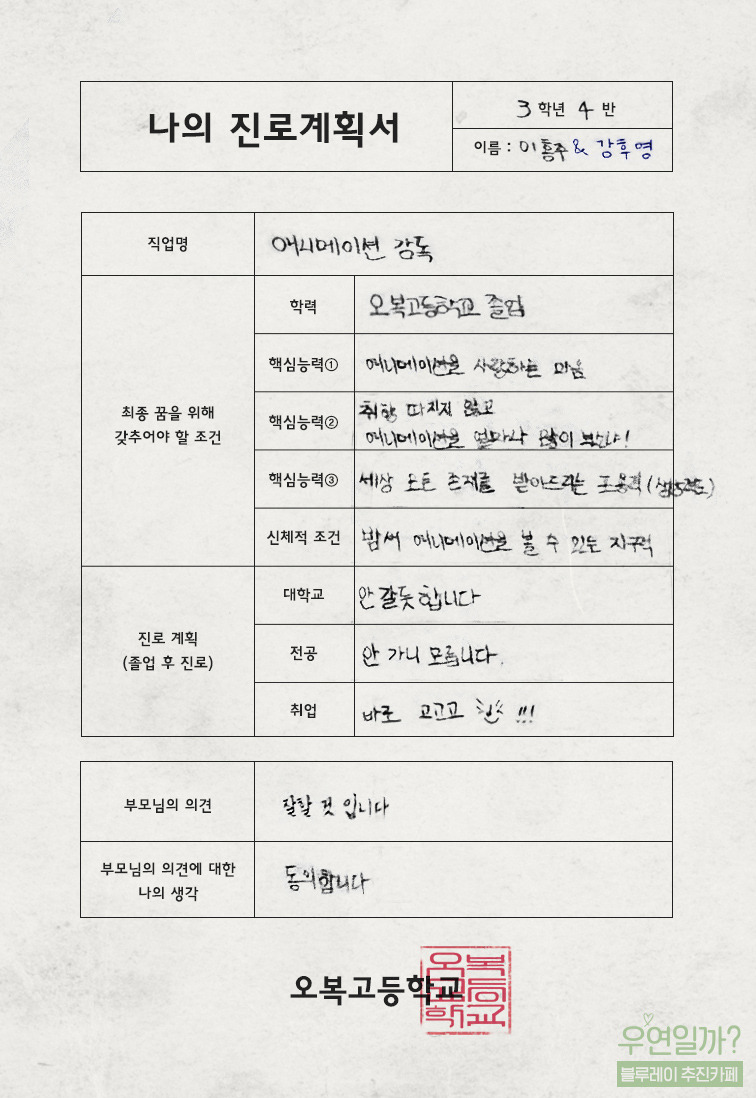 나의 진로계획서
3 학년 4 반
이름 : 이홍주 & 강후영
직업명
애니메이션 감독
최종 꿈을 위해
갖추어야 할 조건
학력
오복고등학교 졸업
핵심능력①
애니메이션을 사랑하는 마음
핵심능력②
취향 따지지 않고
애니메이션을 얼마나 많이 보느냐!
핵심능력③
세상 모든 존재를 받아드리는 포용력
신체적 조건
밤새 애니메이션을 볼 수 있는 지구력
진로 계획
(졸업 후 진로)
대학교
안 갈듯 합니다
전공
안 가니 모릅니다.
취업
바로 고고고 !!!
부모님의 의견
잘할 것 입니다
부모님의 의견에 대한
나의 생각
동의합니다
오복고등학교
오복고등학교
우연일까?
블루레이 추진카페